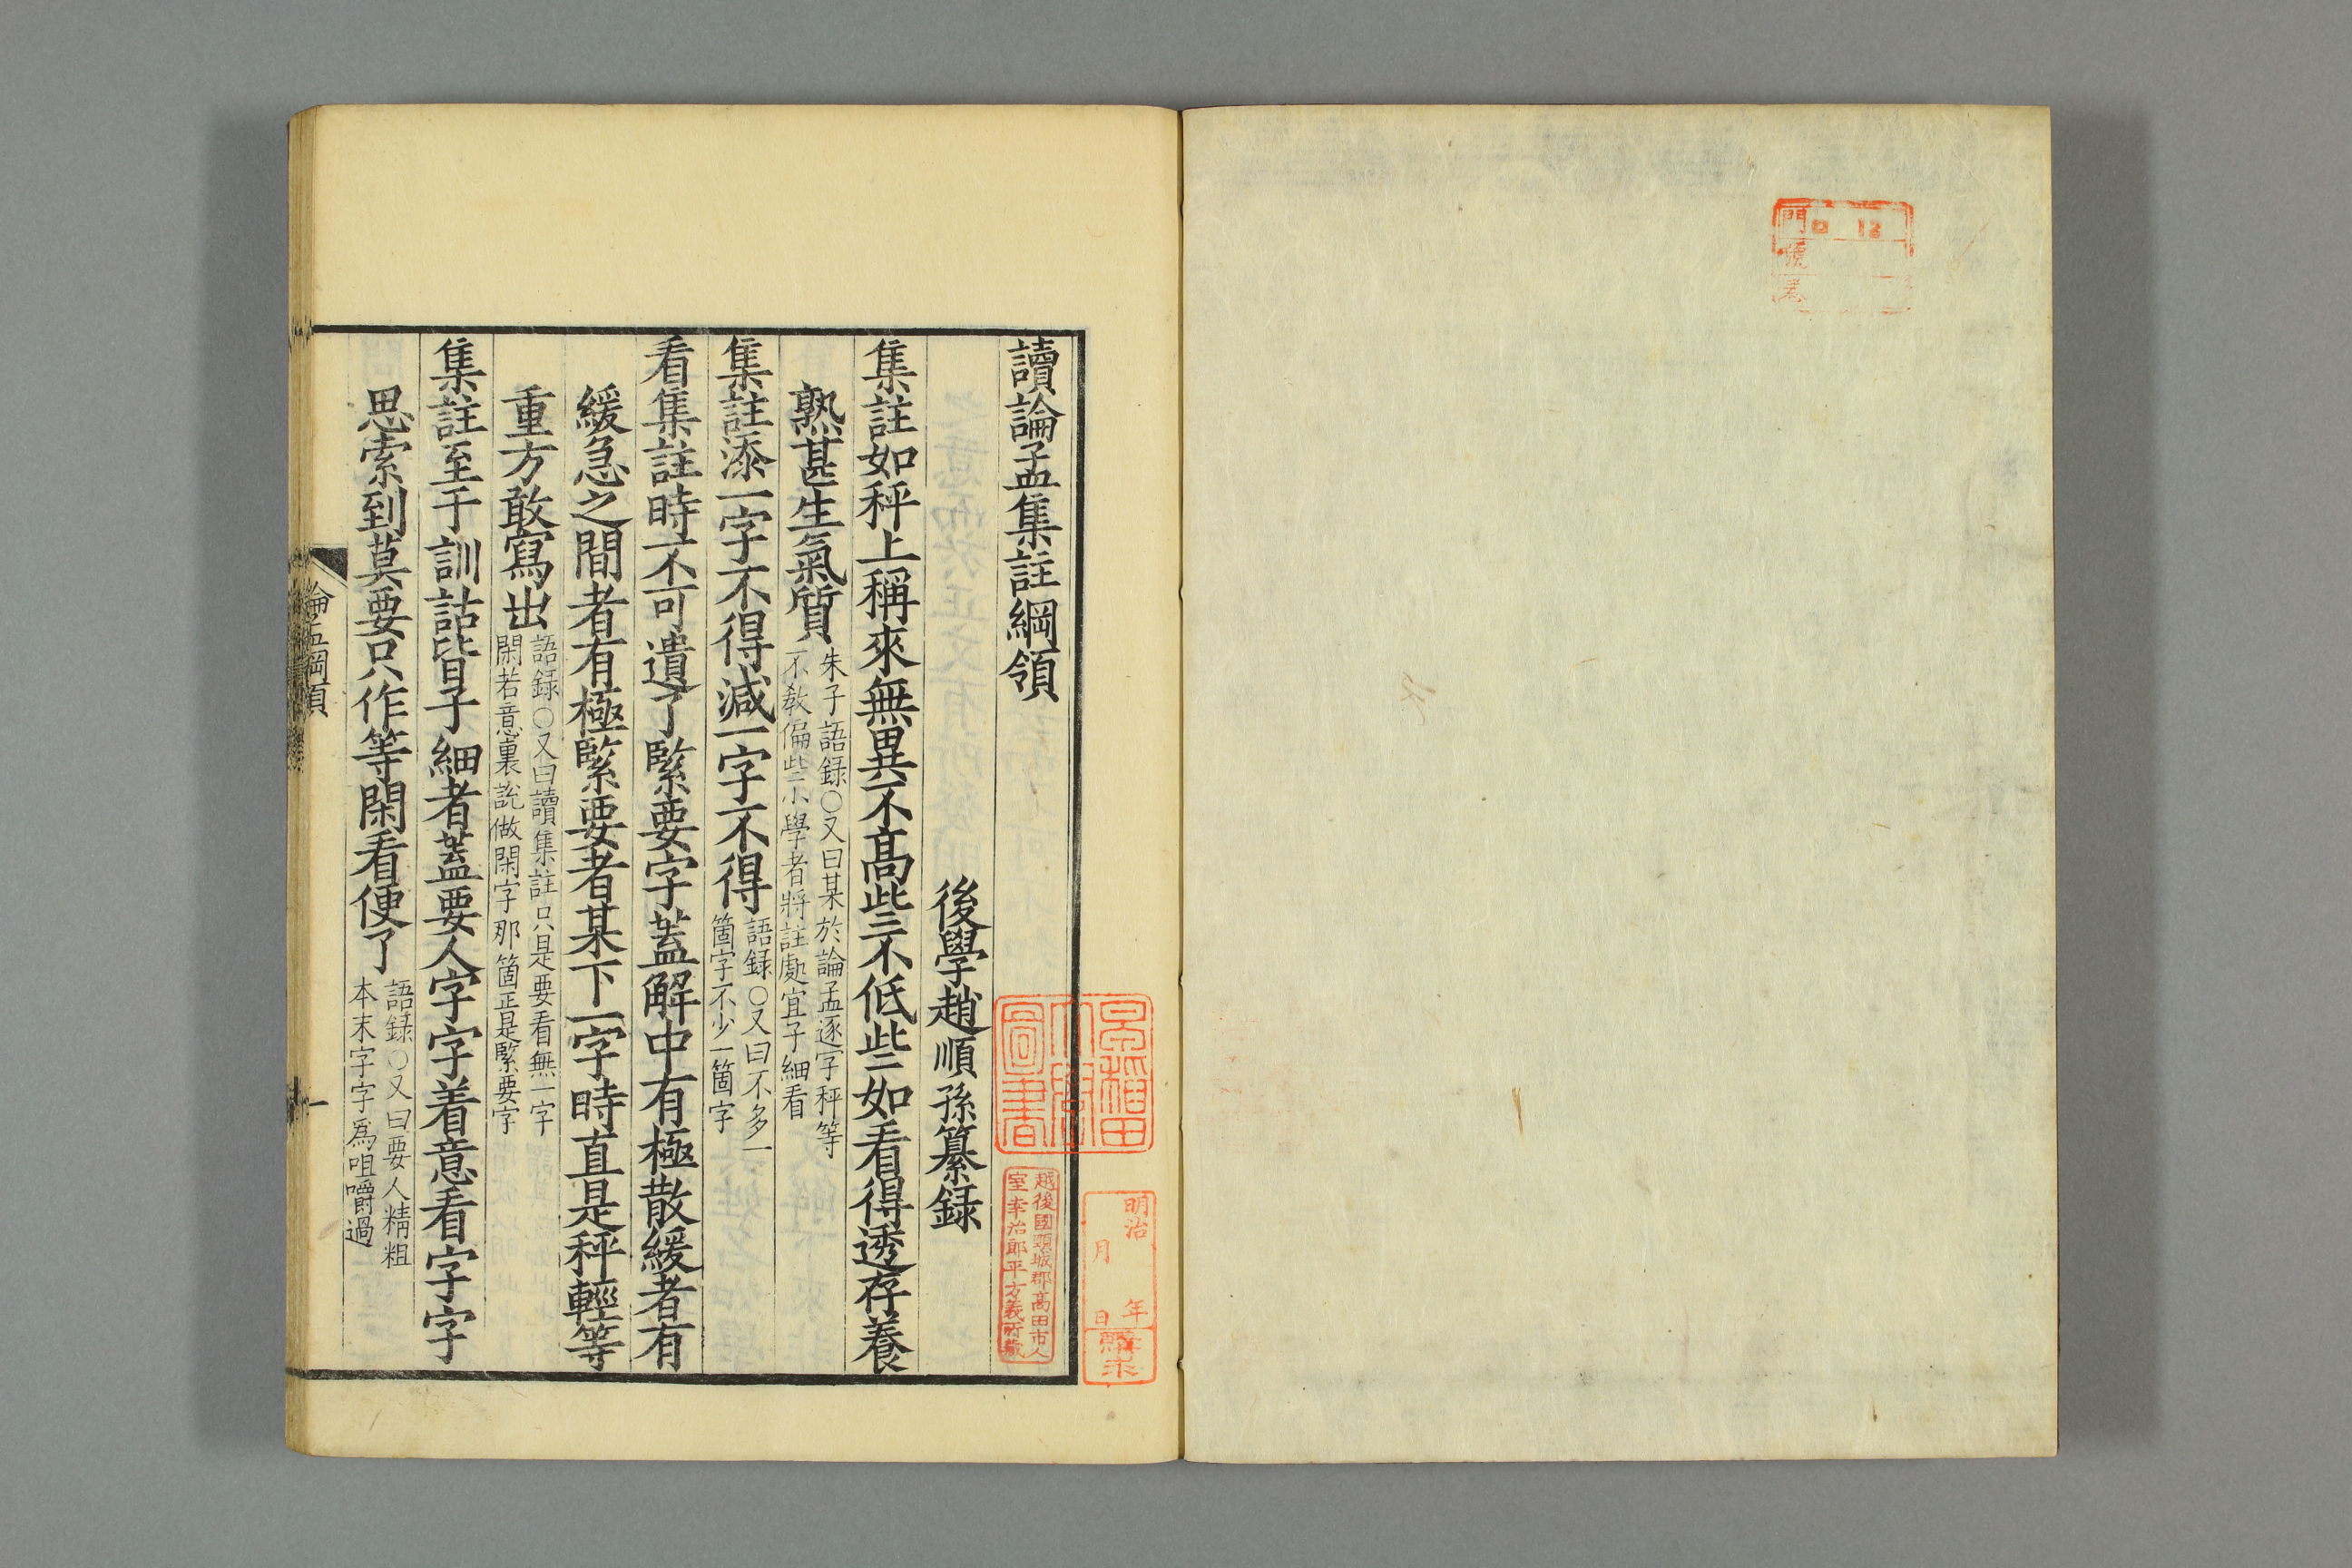 門 ロ 13
號
卷
讀論孟集註綱領
後學趙順孫纂録
集註如秤上稱來無異不高些不低些如看得透存養
熟甚生氣質
朱子語録○又曰某於論孟逐字秤等
不敎偏些小學者將註處宜子細看
集註添一字不得減一字不得
語録○又曰不多一
箇字不少一箇字
看集註時不可遺了緊要字蓋解中有極散緩者有
緩急之間者有極緊要者某下一字時直是秤輕等
重方敢寫出
語録○又曰讀集註只是要看無一字
閑若意裏說做閑字那箇正是緊要字
集註至于訓詁皆子細者蓋要人字字着意看字字
思索到莫要只作等閑看便了
語録○又曰要人精粗
本末字字爲咀嚼過
論孟綱領
一
早稻田
大學
圖書
越後國頸城郡高田市人
室孝治郎平方義所藏
明治 年
月 日
購求